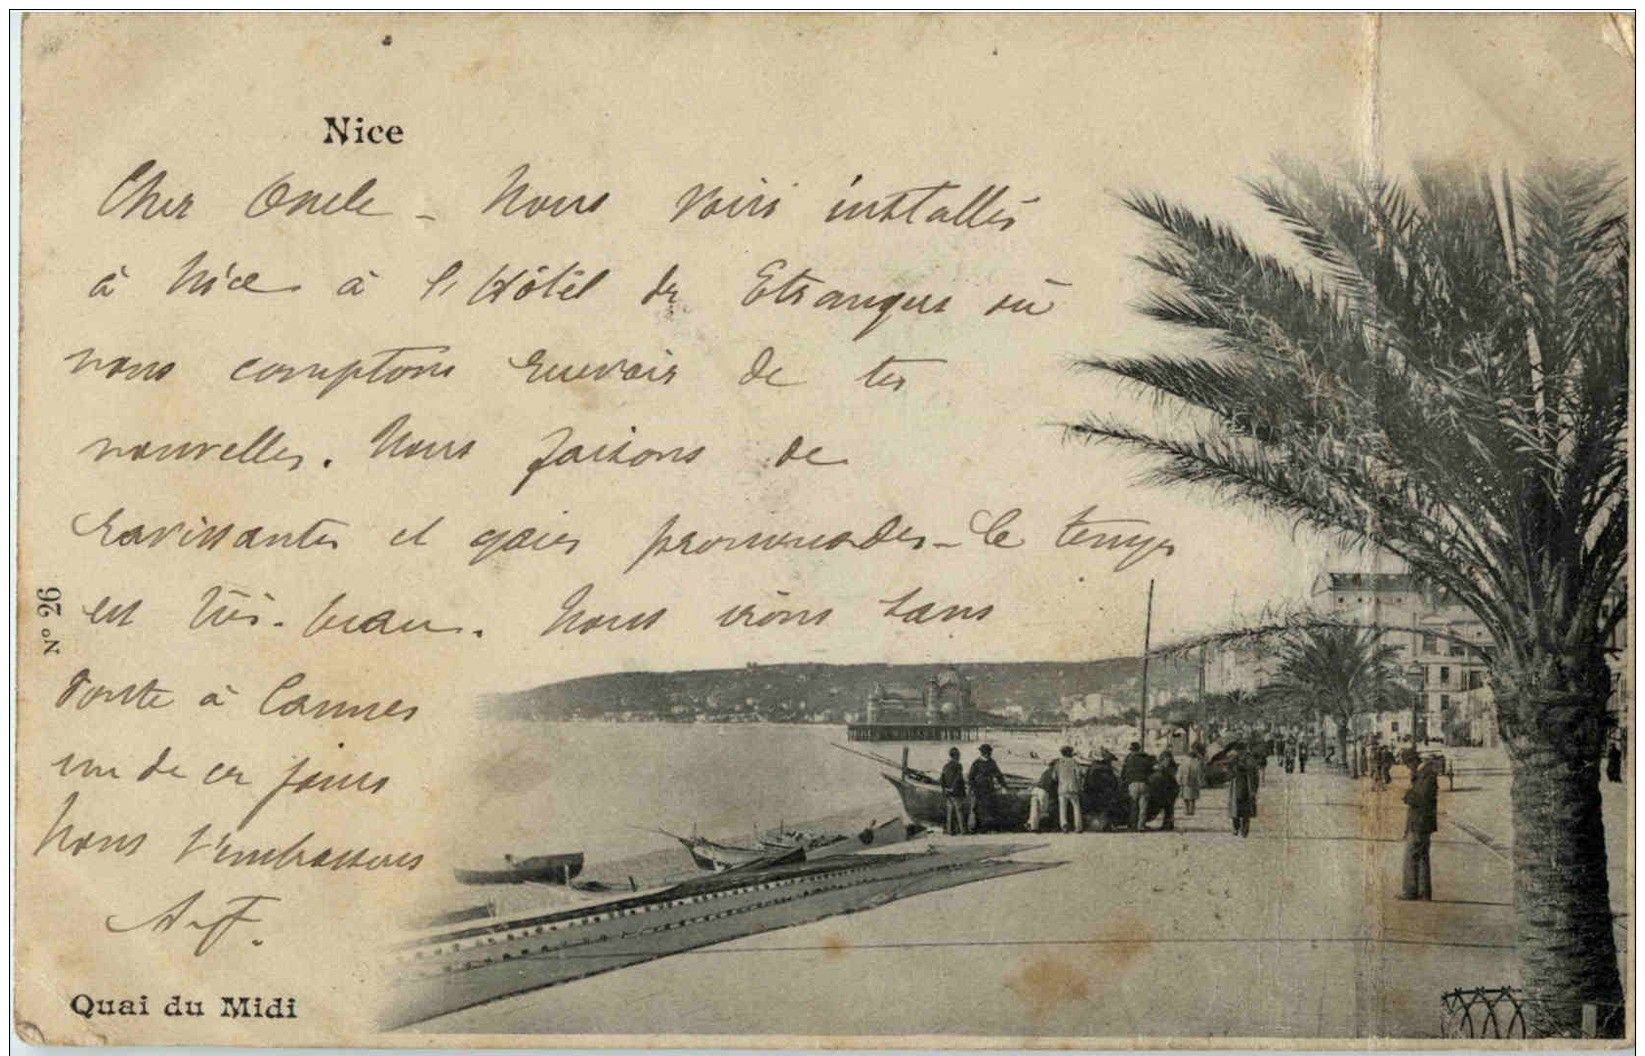 Nice
Cher Oncle - Nous voici installés
à Nice à l'Hôtel des Etrangers où
nous comptons recevoir de tes
nouvelles. Nous faisons de
ravissantes et gaies promenades - le temps
est très-beau. Nous irons sans
doute à Cannes
un de ces jours
Nous t'embrassons
A.F.
Quai du Midi
No 26